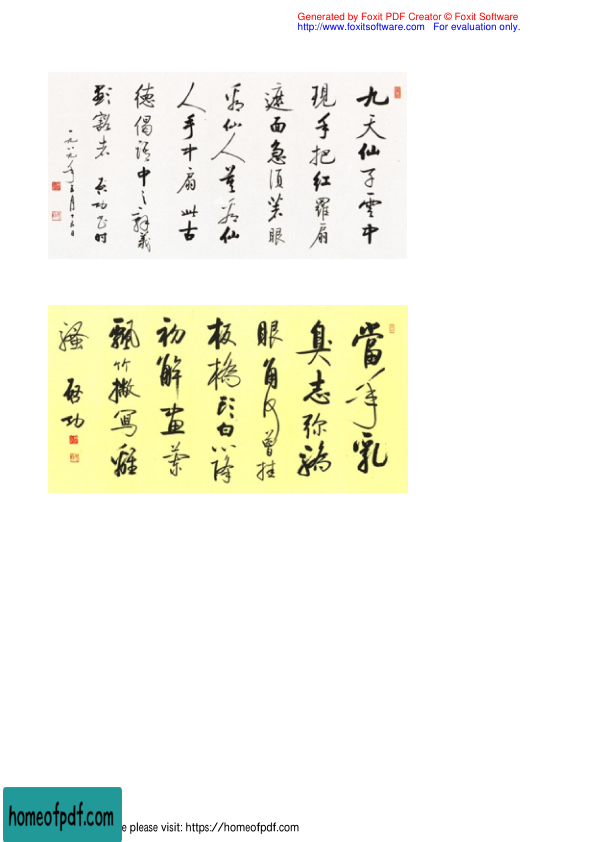 Generated by Foxit PDF Creator © Foxit Software
http://www.foxitsoftware.com For evaluation only.
九天仙子雲中
現手把紅羅扇
遮面急須著眼
看仙人莫看仙
人手中扇此古
德偈語中之辭義
啓功
一九八九年
當年乳
臭志彌驕
眼角何曾挂
板橋頭白心降
初解畫蘭
飄竹撇寫離
騷 啓功
homeofpdf.com
e please visit: https://homeofpdf.com